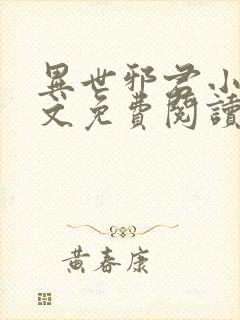 異世邪君小
文免費閱讀
黃春康